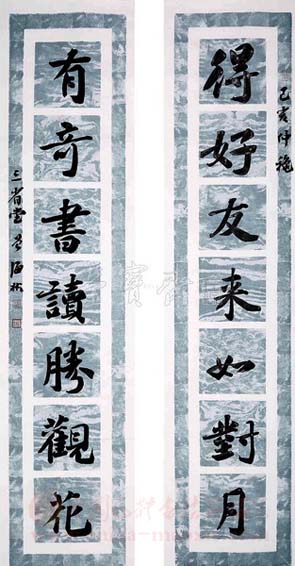 己亥仲穐
得好友来如對月
有奇書讀勝觀花
三省堂